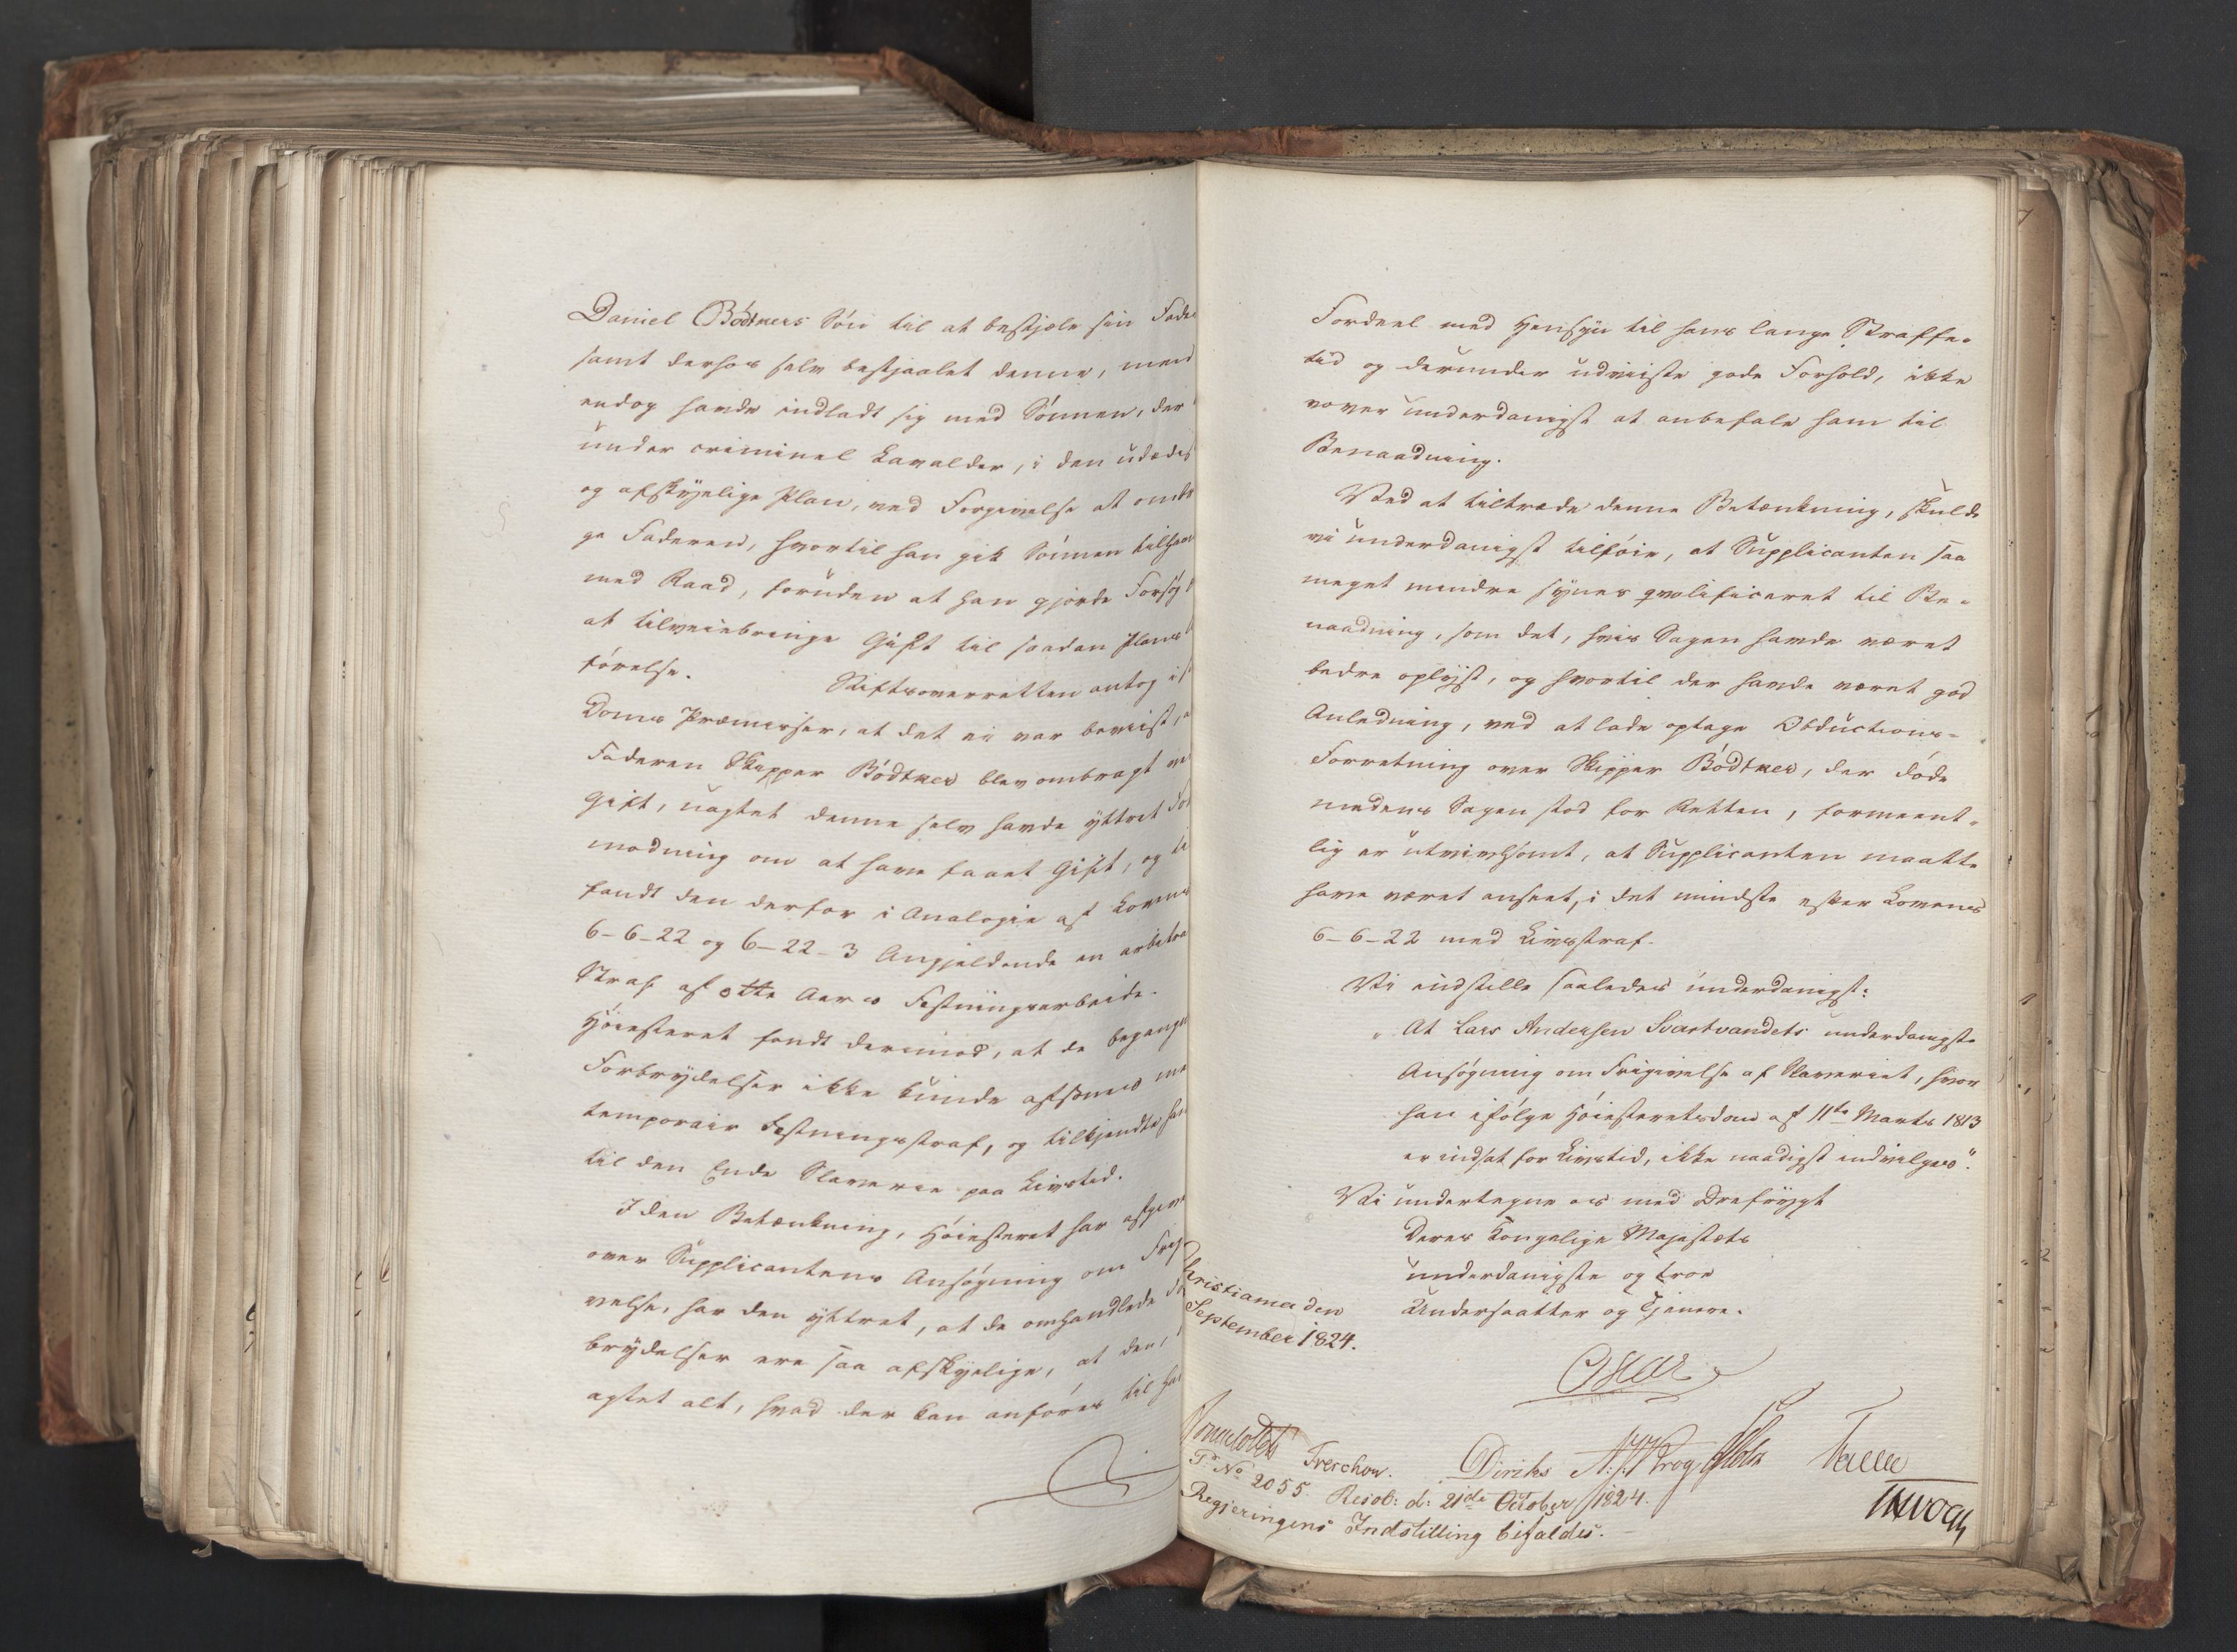 Daniel Bödtkers Sön til at bestjæle sin Fader
samt derhos selv bestjaalet denne, men
endog havde indladt sig med Sönnen, der
under criminel Lavalder, i den udædis
og afskyelige Plan, ved Forgivelse at ombr
ge Faderen, hvortil han gik Sönnen tilhaan
med Raad, foruden at han gjorde Forsög
at tilveiebringe Gift til saadan Plans
förelse. Stiftsoverretten antog i
Doms Præmisser, at det ei var beviist,
Faderen Skipper Bödtker blev ombragt ve
Gift, uagtet denne selv havde yttret For
modning om at have faaet Gift, og
fandt den derfor i Analogie af Lovens
6-6-22 og 6-22-3 Angjeldende en arbitra
Straf af otte Aars Fæstningsarbeide.
Höiesteret fandt derimod, at de begangne
Forbrydelser ikke kunde afsones me
temporair Fæstningsstraf, og tilkjendte ham
til den Ende Slaverie paa Livstid.
I den Betænkning, Höiesteret har afgive
over Supplicantens Ansögning om Frigi
velse, har den yttret, at de omhandlede For
brydelser ere saa afskyelige, at den,
agtet alt, hvad der kan anföres til ha
Fordeel med Hensyn til hans lange Straffe-
tid og derunder udviiste gode Forhold, ikke
vover underdanigst at anbefale ham til
Benaadning.
Ved at tiltræde denne Betænkning, skulde
vi underdanigst tilföie, at Supplicanten saa
meget mindre synes qvalificeret til Be-
naadning, som det, hvis Sagen havde været
bedre oplyst, og hvortil der havde været god
Anledning, ved at lade optage Obductions-
Forretning over Skipper Bödtker, der döde
medens Sagen stod for Retten, formeent-
lig er utvivlsomt, at Supplicanten maatte
have været anseet, i det mindste efter Lovens
6-6-22 med Livsstraf.
Vi indstille saaledes underdanigst:
"At Lars Andersen Svartvandets underdanigste
Ansögning om Frigivelse af Slaveriet, hvor
han ifölge Höiesteretsdom af 11te Marts 1813
er indsat for Livstid, ikke naadigst indvilges".
Vi undertegne os med Dybfrygt
Deres Kongelige Majestæts
underdanigste og troe
Undersaatter og Tjenere.
Christiania den
September 1824.
Oscar
Sommerfeldt Treschow. Diriks Krog Holst
P: No 2055. Resol: d: 21de October 1824.
Regjeringens Indstilling bifaldes.